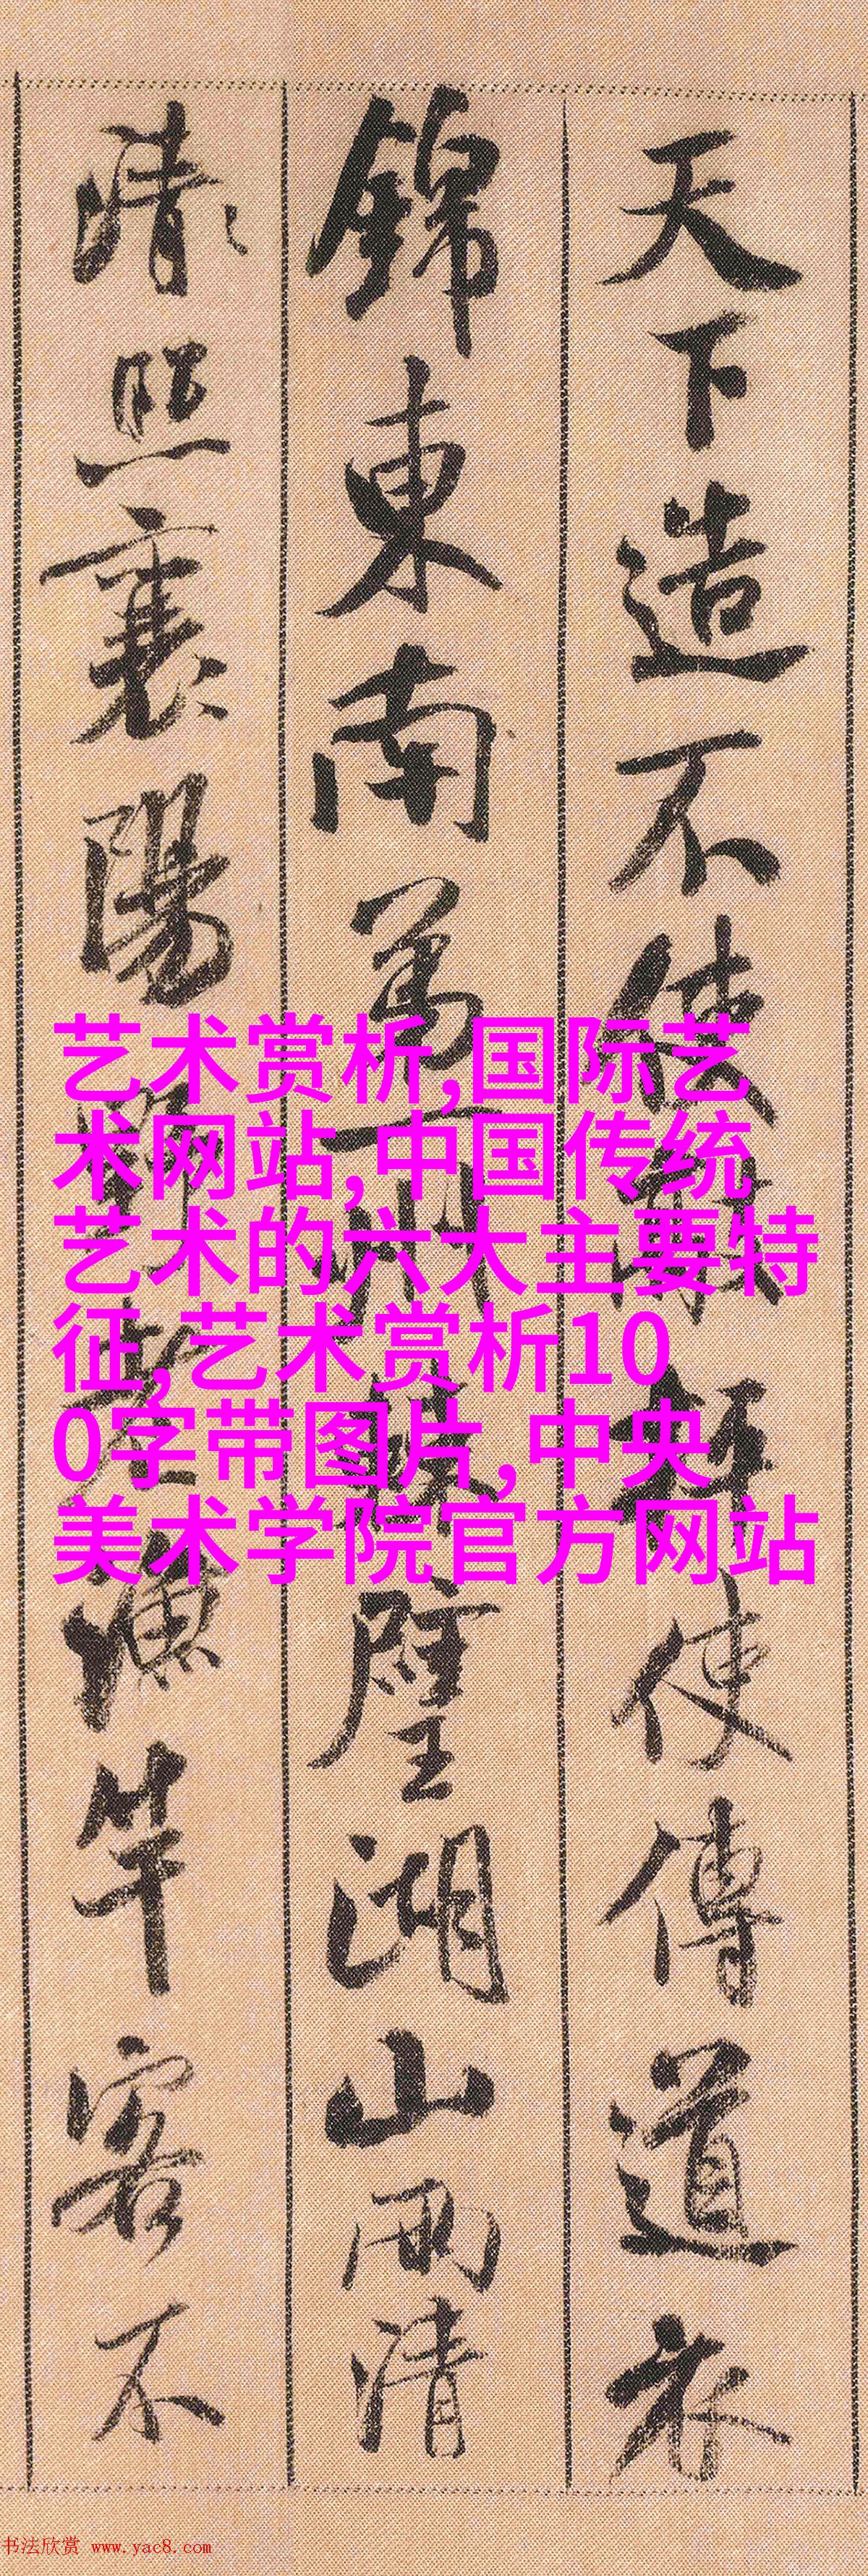 天下造不使敵 使傳道衣
錦東南萬 壁湖山兩清
清々照襄陽 漁竿客不
艺术赏析,国际艺
术网站,中国传统
艺术的六大主要特
征,艺术赏析10
0字带图片,中央
美术学院官方网站
书法欣赏 www.yac8.com